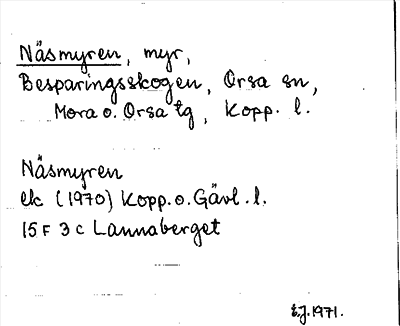 Näsmyren, myr,
Besparingsskogen, Orsa sn,
Mora o. Orsa tg, Kopp. l.
Näsmyren
ek (1970) Kopp. o. Gävl. l.
15 F 3 c Lannaberget
E.J. 1971.